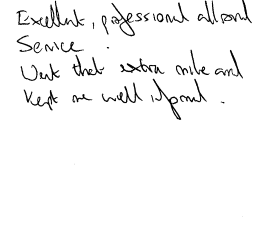 Excellent, professional all round
Service .
Went that extra mile and
kept me well informed .